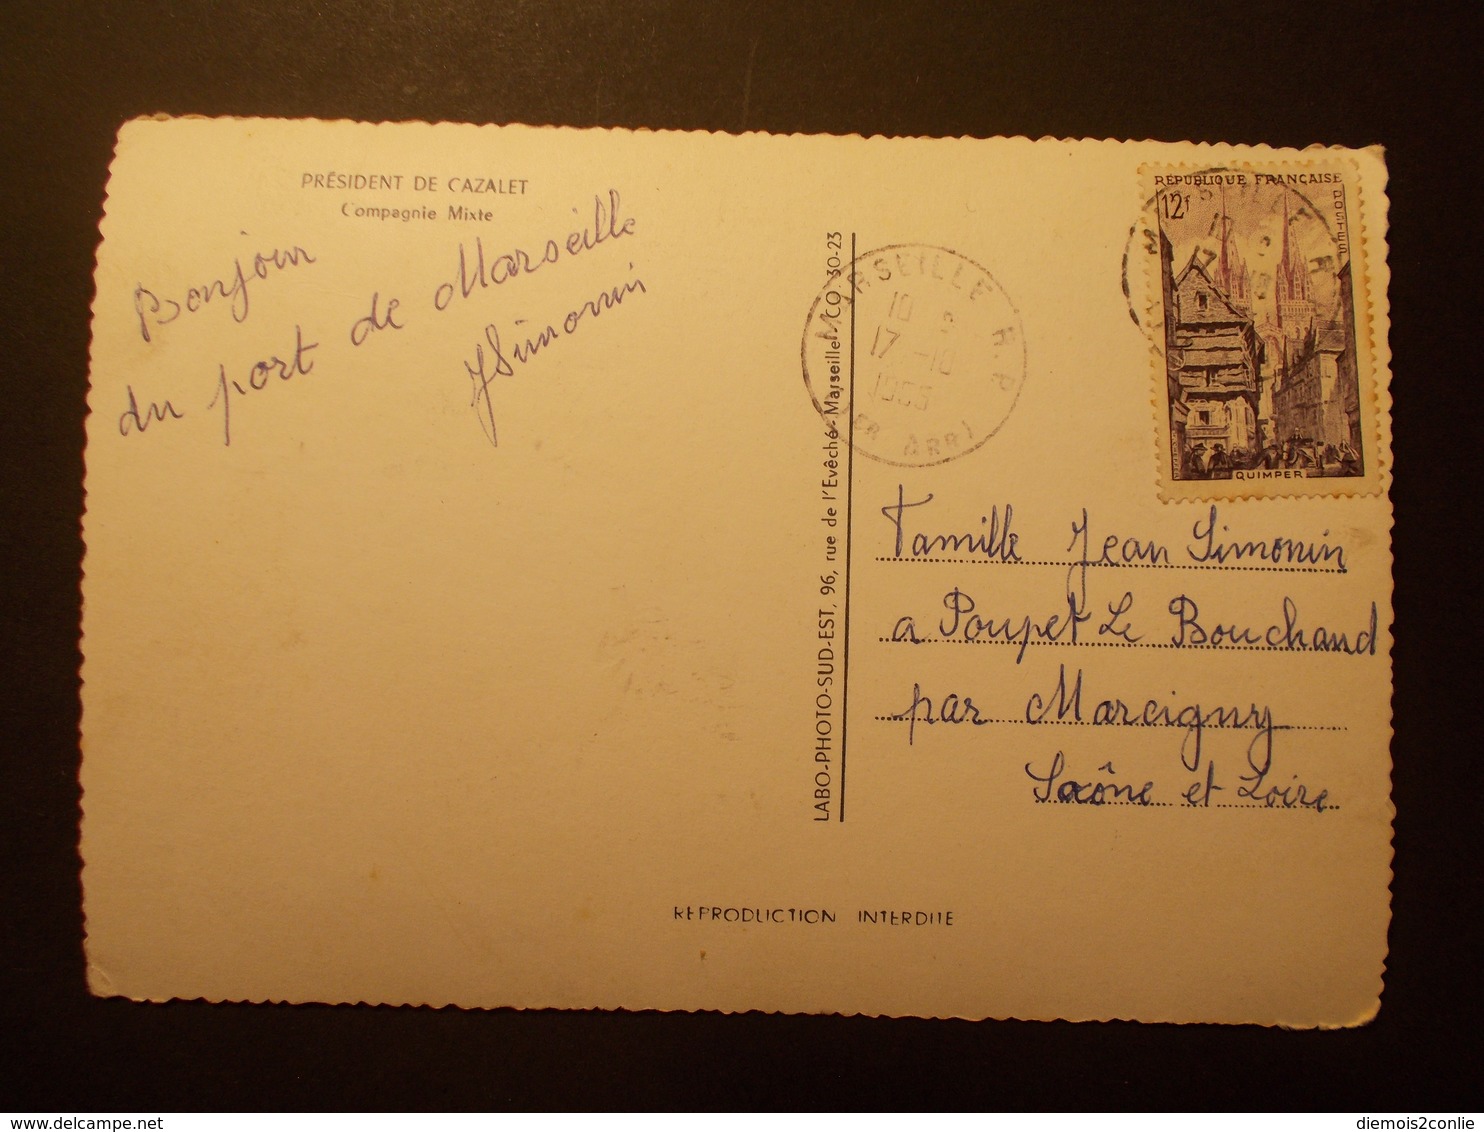 PRÉSIDENT DE CAZALET
Compagnie Mixte
Bonjour
du port de Marseille
JSimonin
LABO-PHOTO-SUD-EST, 96, rue de l'Evêché-Marseille CO. 30-23
MARSEILLE R.P.
10
17 -10
1955
ARR)
RÉPUBLIQUE FRANÇAISE
12f
POSTES
QUIMPER
Famille Jean Simonin
a Poupet Le Bouchaud
par Marcigny
Saône et Loire
REPRODUCTION INTERDITE
delcampe.net
diemois2conlie